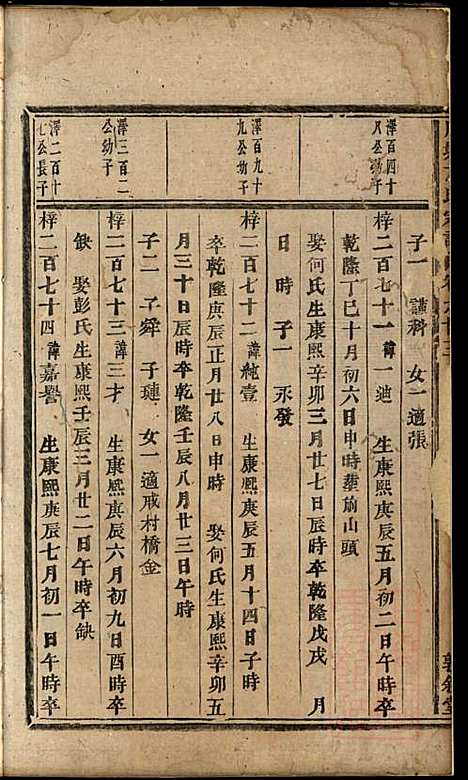 子一 謹科 女一適張
澤百四十
八公幼子
梓二百七十一 諱一迪 生康熙庚辰五月初二日午時卒
乾隆丁巳十月初六日申時塟前山頭
娶何氏生康熙辛卯三月廿七日辰時卒乾隆戊戌 月
日時 子一 永發
澤百九十
九公幼子
梓二百七十二 諱純壹 生康熙庚辰五月十四日子時
卒乾隆庚辰正月廿八日申時 娶何氏生康熙辛卯五
月三十日辰時卒乾隆壬辰八月廿三日午時
子二 子舜 子璉 女一適戒村橋金
澤三百二
公幼子
梓二百七十三 諱三才 生康熙庚辰六月初九日酉時卒
缺 娶彭氏生康熙壬辰三月廿二日午時卒缺
澤二百十
七公長子
梓二百七十四 諱嘉譽 生康熙庚辰七月初一日午時卒
敦敘堂